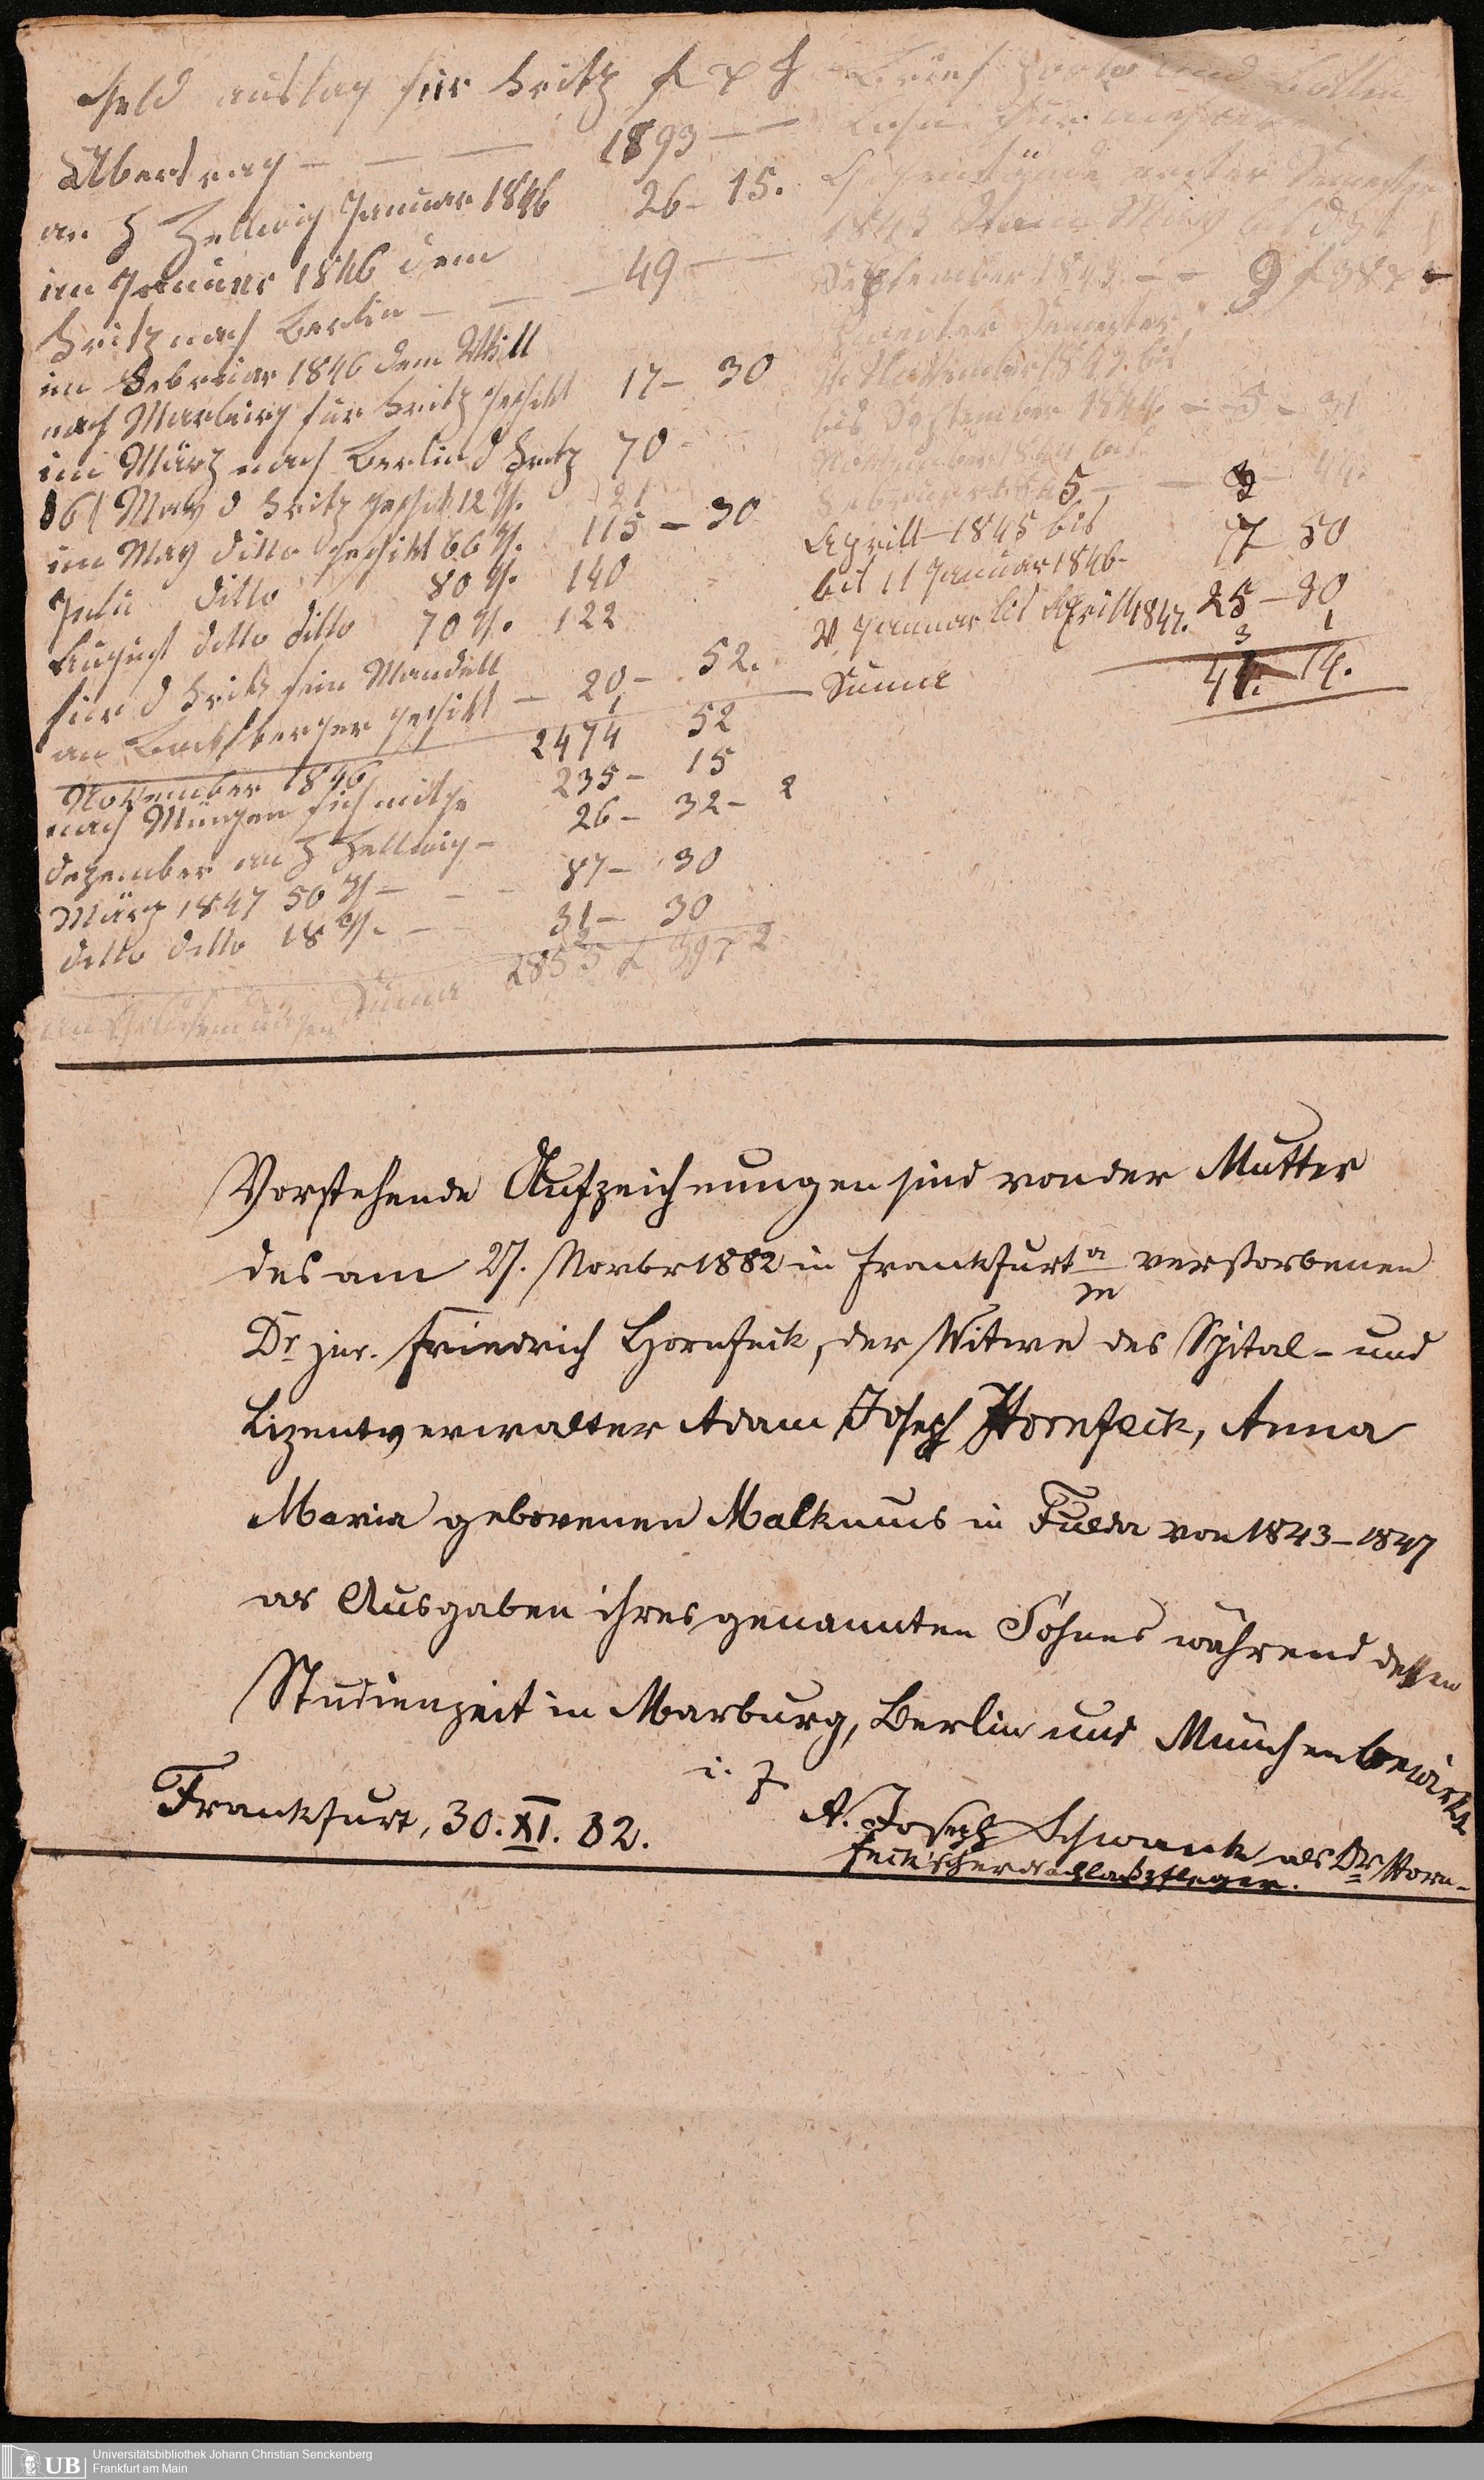 Geld auslag für Fritz f x ₰
Übertrag — — — 1893 — —
an H Hellwig Januar 1846 26 — 15.
im Januar 1846 dem
Fritz nach Berlin — — — 49 — —
im Februar 1846 dem Will
nach Marburg für Fritz geschikt 17 — 30
im März nach Berlin d Fritz 70 —
d 6t May d Fritz geschikt 12 Th. 21
im May ditto geschikt 66 Th. 115 — 30
Juli ditto 80 Th. 140
August ditto ditto 70 Th. 122
für d Fritz sein Mandell
an geschikt — 20 — 52.
2474 52
November 1846
nach München sich mitge 235 — 15
Dezember an H Hellwig — 26 — 32 — 2
März 1847 50 Th — — — 87 — 30
ditto ditto 18 Th. — 31 — 30
Suma 2855 f 39 x 2
Brief porto und Botten
Lohn für
erster Semester
1843 May bis
September 1843 — — 9 f 38 x
Zweiter Semester
November 1843 bis
bis September 1844 — 5 — 31
November 1844 bis
5. — — 3 44.
Aprill 1845 bis
bis 11 Januar 1846 — 7 50
V Januar bis Aprill 1847. 25 — 30
Suma 14.
Vorstehende Aufzeichnungen sind von der Mutter
des am 27. Novbr 1882 in Frankfurt a/M verstorbenen
Dr jur. Friedrich Hornfeck, der Witwe des Spital- und
Lizentverwalter Adam Joseph Hornfeck, Anna
Maria geborenen Malkmus in Fulda von 1843–1847
als Ausgaben ihres genannten Sohnes während dessen
Studienzeit in Marburg, Berlin und München bewirkt
Frankfurt, 30. XI. 82.
A. Joseph Schwank als Dr Horn-
feck'scher Nachlaßpfleger.
UB Universitätsbibliothek Johann Christian Senckenberg
Frankfurt am Main